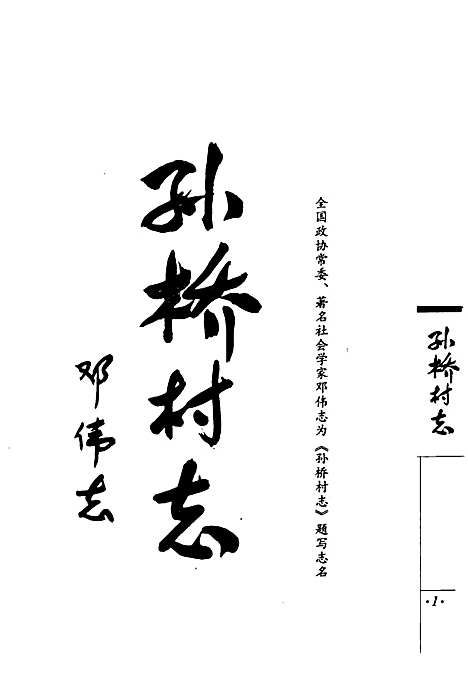 全国政协常委、著名社会学家邓伟志为《孙桥村志》题写志名
孙桥村志
邓伟志
孙桥村志
·1·